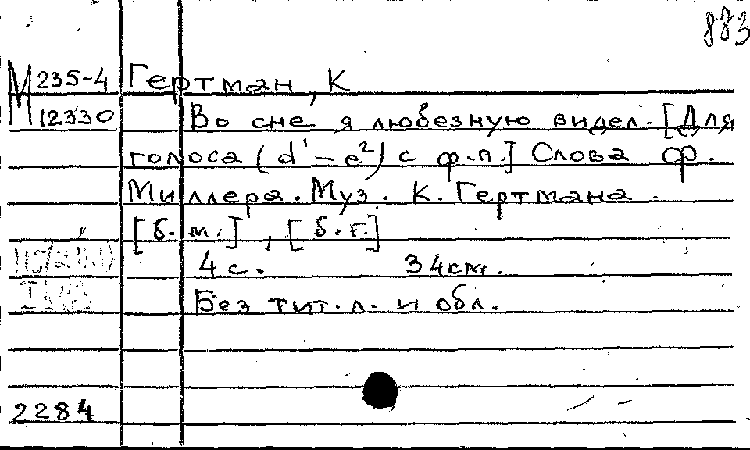 883
М 235-4 Гертман, К
12330 Во сне я любезную видел. [Для
голоса (d¹-e²) с ф.п.] Слова Ф.
Миллера. Муз. К. Гертмана.
[б. м.], [б. г.]
4 с. 34 см.
Без тит. л. и обл.
2284